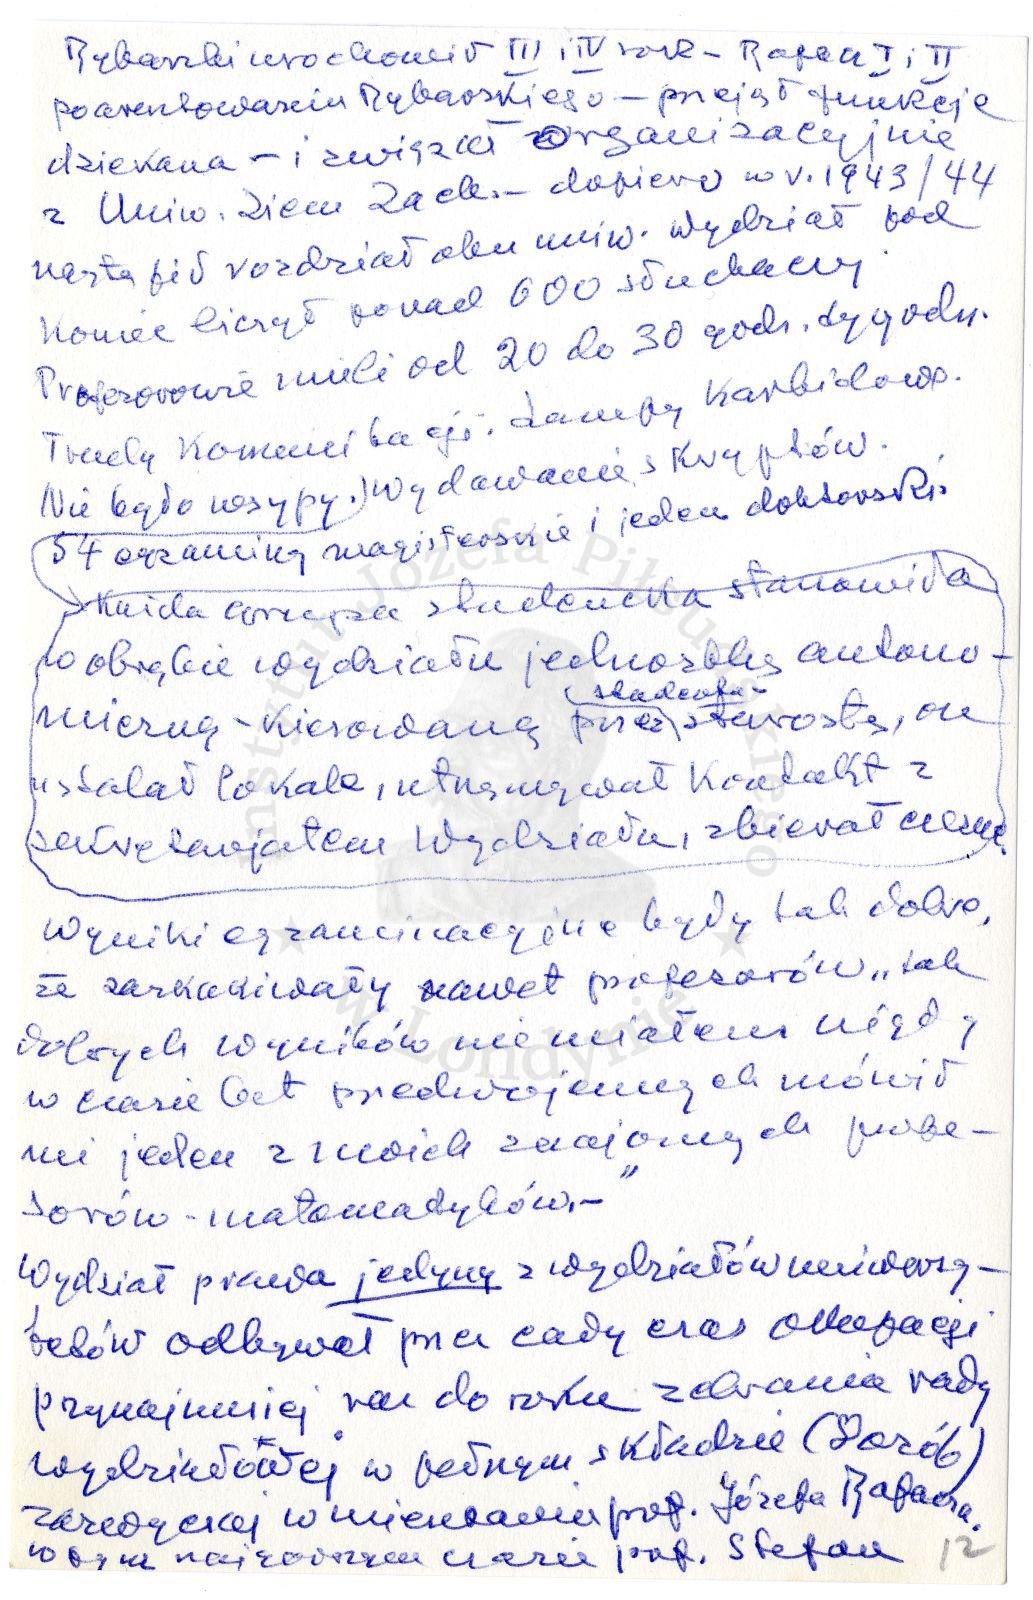 Rybarski uruchomił III i IV rok – Rafacz I i II
po aresztowaniu Rybarskiego – przejął funkcję
dziekana – i związał organizacyjnie
z Uniw. Ziem Zach. – dopiero w r. 1943/44
nastąpił rozdział obu uniw. Wydział pod
koniec liczył ponad 600 słuchaczy.
Profesorowie mieli od 20 do 30 godz. tygodn.
Trudy komunikacji. Lampy karbidowe.
(Nie było wsypy.) Wydawanie skryptów.
54 egzaminy magisterskie i jeden doktorski.
Każda grupa studencka stanowiła
w obrębie wydziału jednostkę autono-
miczną – kierowaną przez starostę, on
studenta-
ustalał lokale, utrzymywał kontakt z
sekretarjatem Wydziału, zbierał czesne.
Wyniki egzaminacyjne były tak dobre,
że zaskakiwały nawet profesorów „tak
dobrych wyników nie miałem nigdy
w czasie lat przedwojennych mówił
mi jeden z moich znajomych profe-
sorów – matematyków. – "
Wydział prawa jedyny z wydziałów uniwersy-
tetów odbywał przez cały czas okupacji
przynajmniej raz do roku zebrania rady
wydziałowej w pełnym składzie (8 osób)
zazwyczaj w mieszkaniu prof. Józefa Rafacza.
w tym najgorszym czasie prof. Stefan
12
Instytut Józefa Piłsudskiego
w Londynie